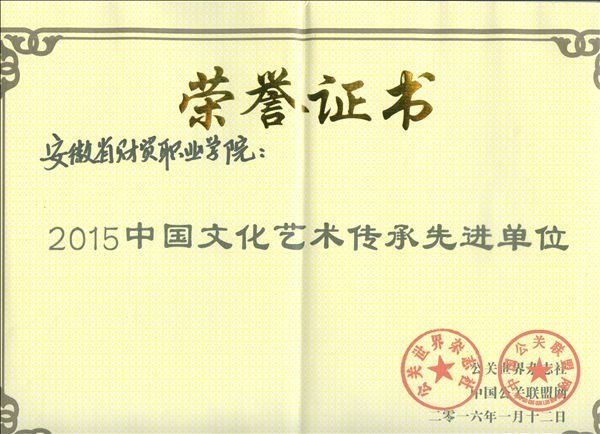 荣誉证书
安徽省财贸职业学院：
2015中国文化艺术传承先进单位
公关世界杂志社
中国公关联盟网
公关世界杂志社
中国公关联盟网
二零一六年一月十二日